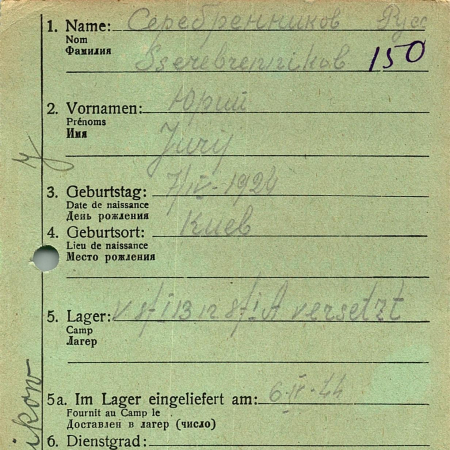 1. Name: Серебренников Русс
Nom
Фамилия
Sserebrennikob 150
2. Vornamen: Юрий
Prénoms
Имя
Jurij
3. Geburtstag: 7/IV-1924
Date de naissance
День рождения
4. Geburtsort: Киев
Lieu de naissance
Место рождения
5. Lager: versetzt
Camp
Лагерь
5a. Im Lager eingeliefert am: 6-IV-44
Fournit au Camp le
Доставлен в лагерь (число)
6. Dienstgrad:
ikow